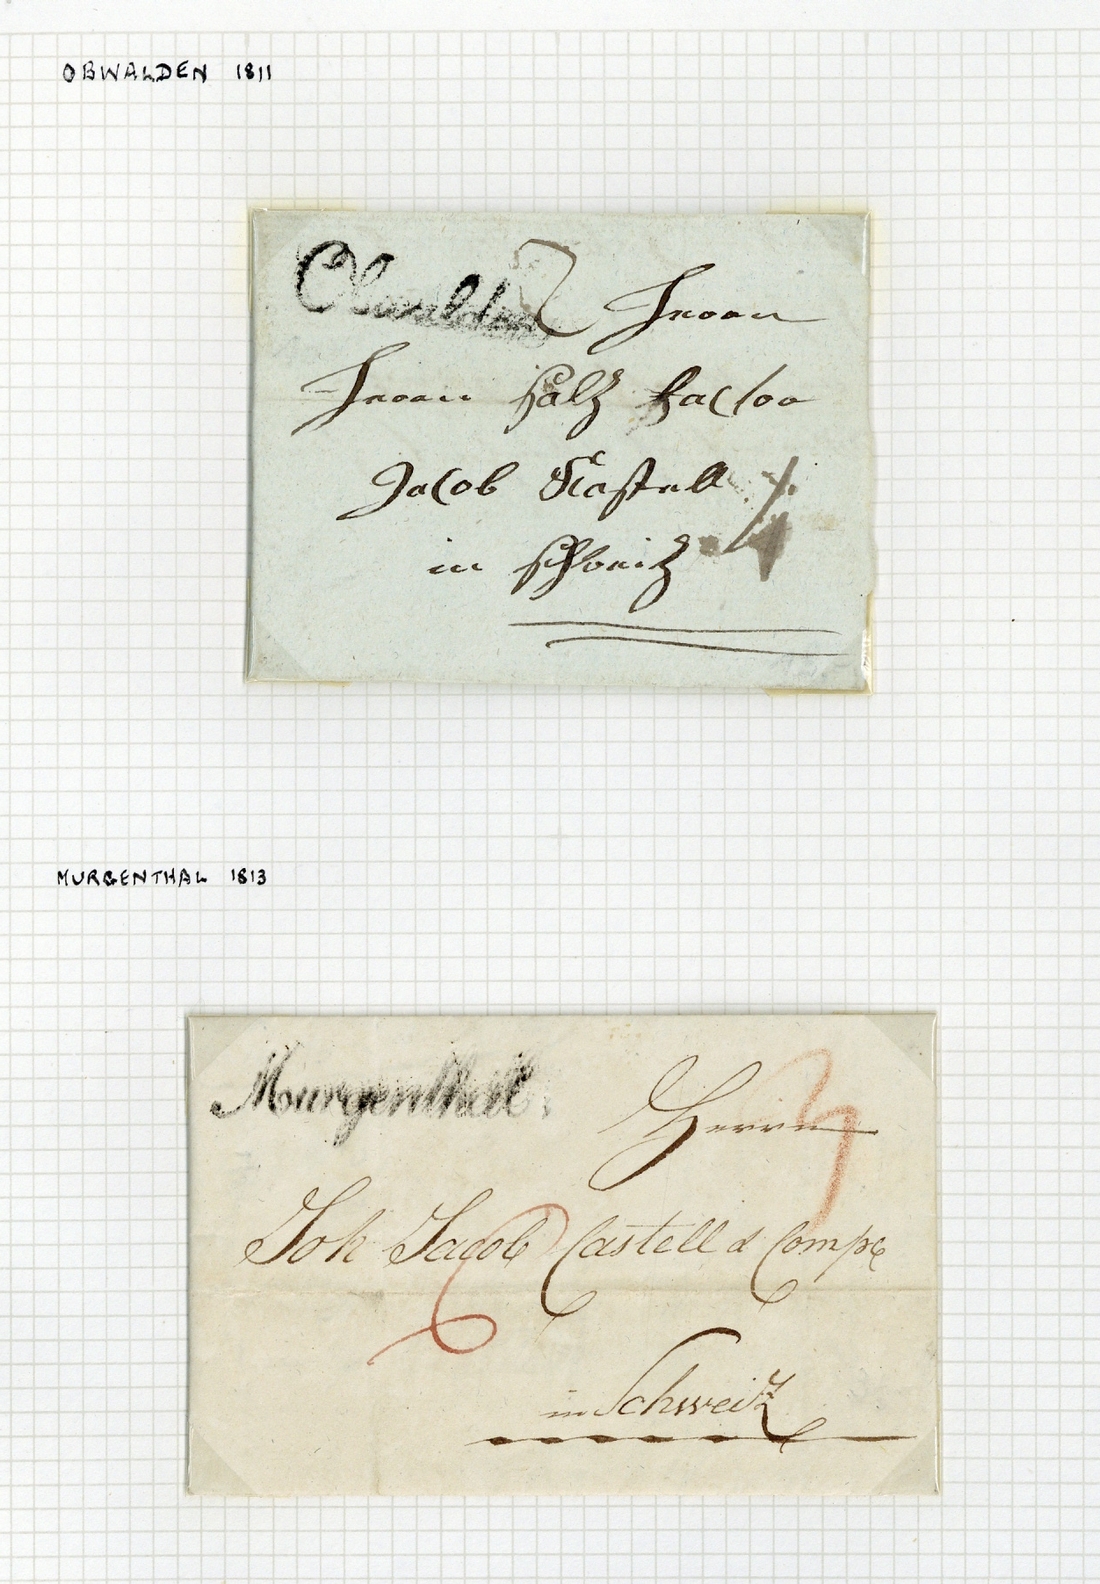 OBWALDEN 1811
Obwalden
Herrn
Herrn Salz Factor
Jacob Kastell
in Schweitz
MURGENTHAL 1813
Murgenthal.
Herrn
Joh Jacob Castell & Compe
6
in Schweitz